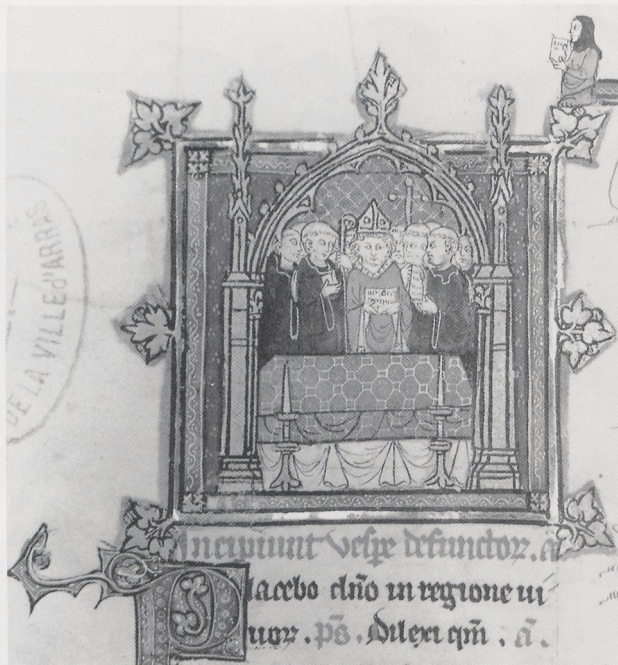 DE LA VILLE d'ARRAS
Incipiunt vespe defunctor. a
Placebo dño in regione ui
uor. ps. Dilexi qm. a.